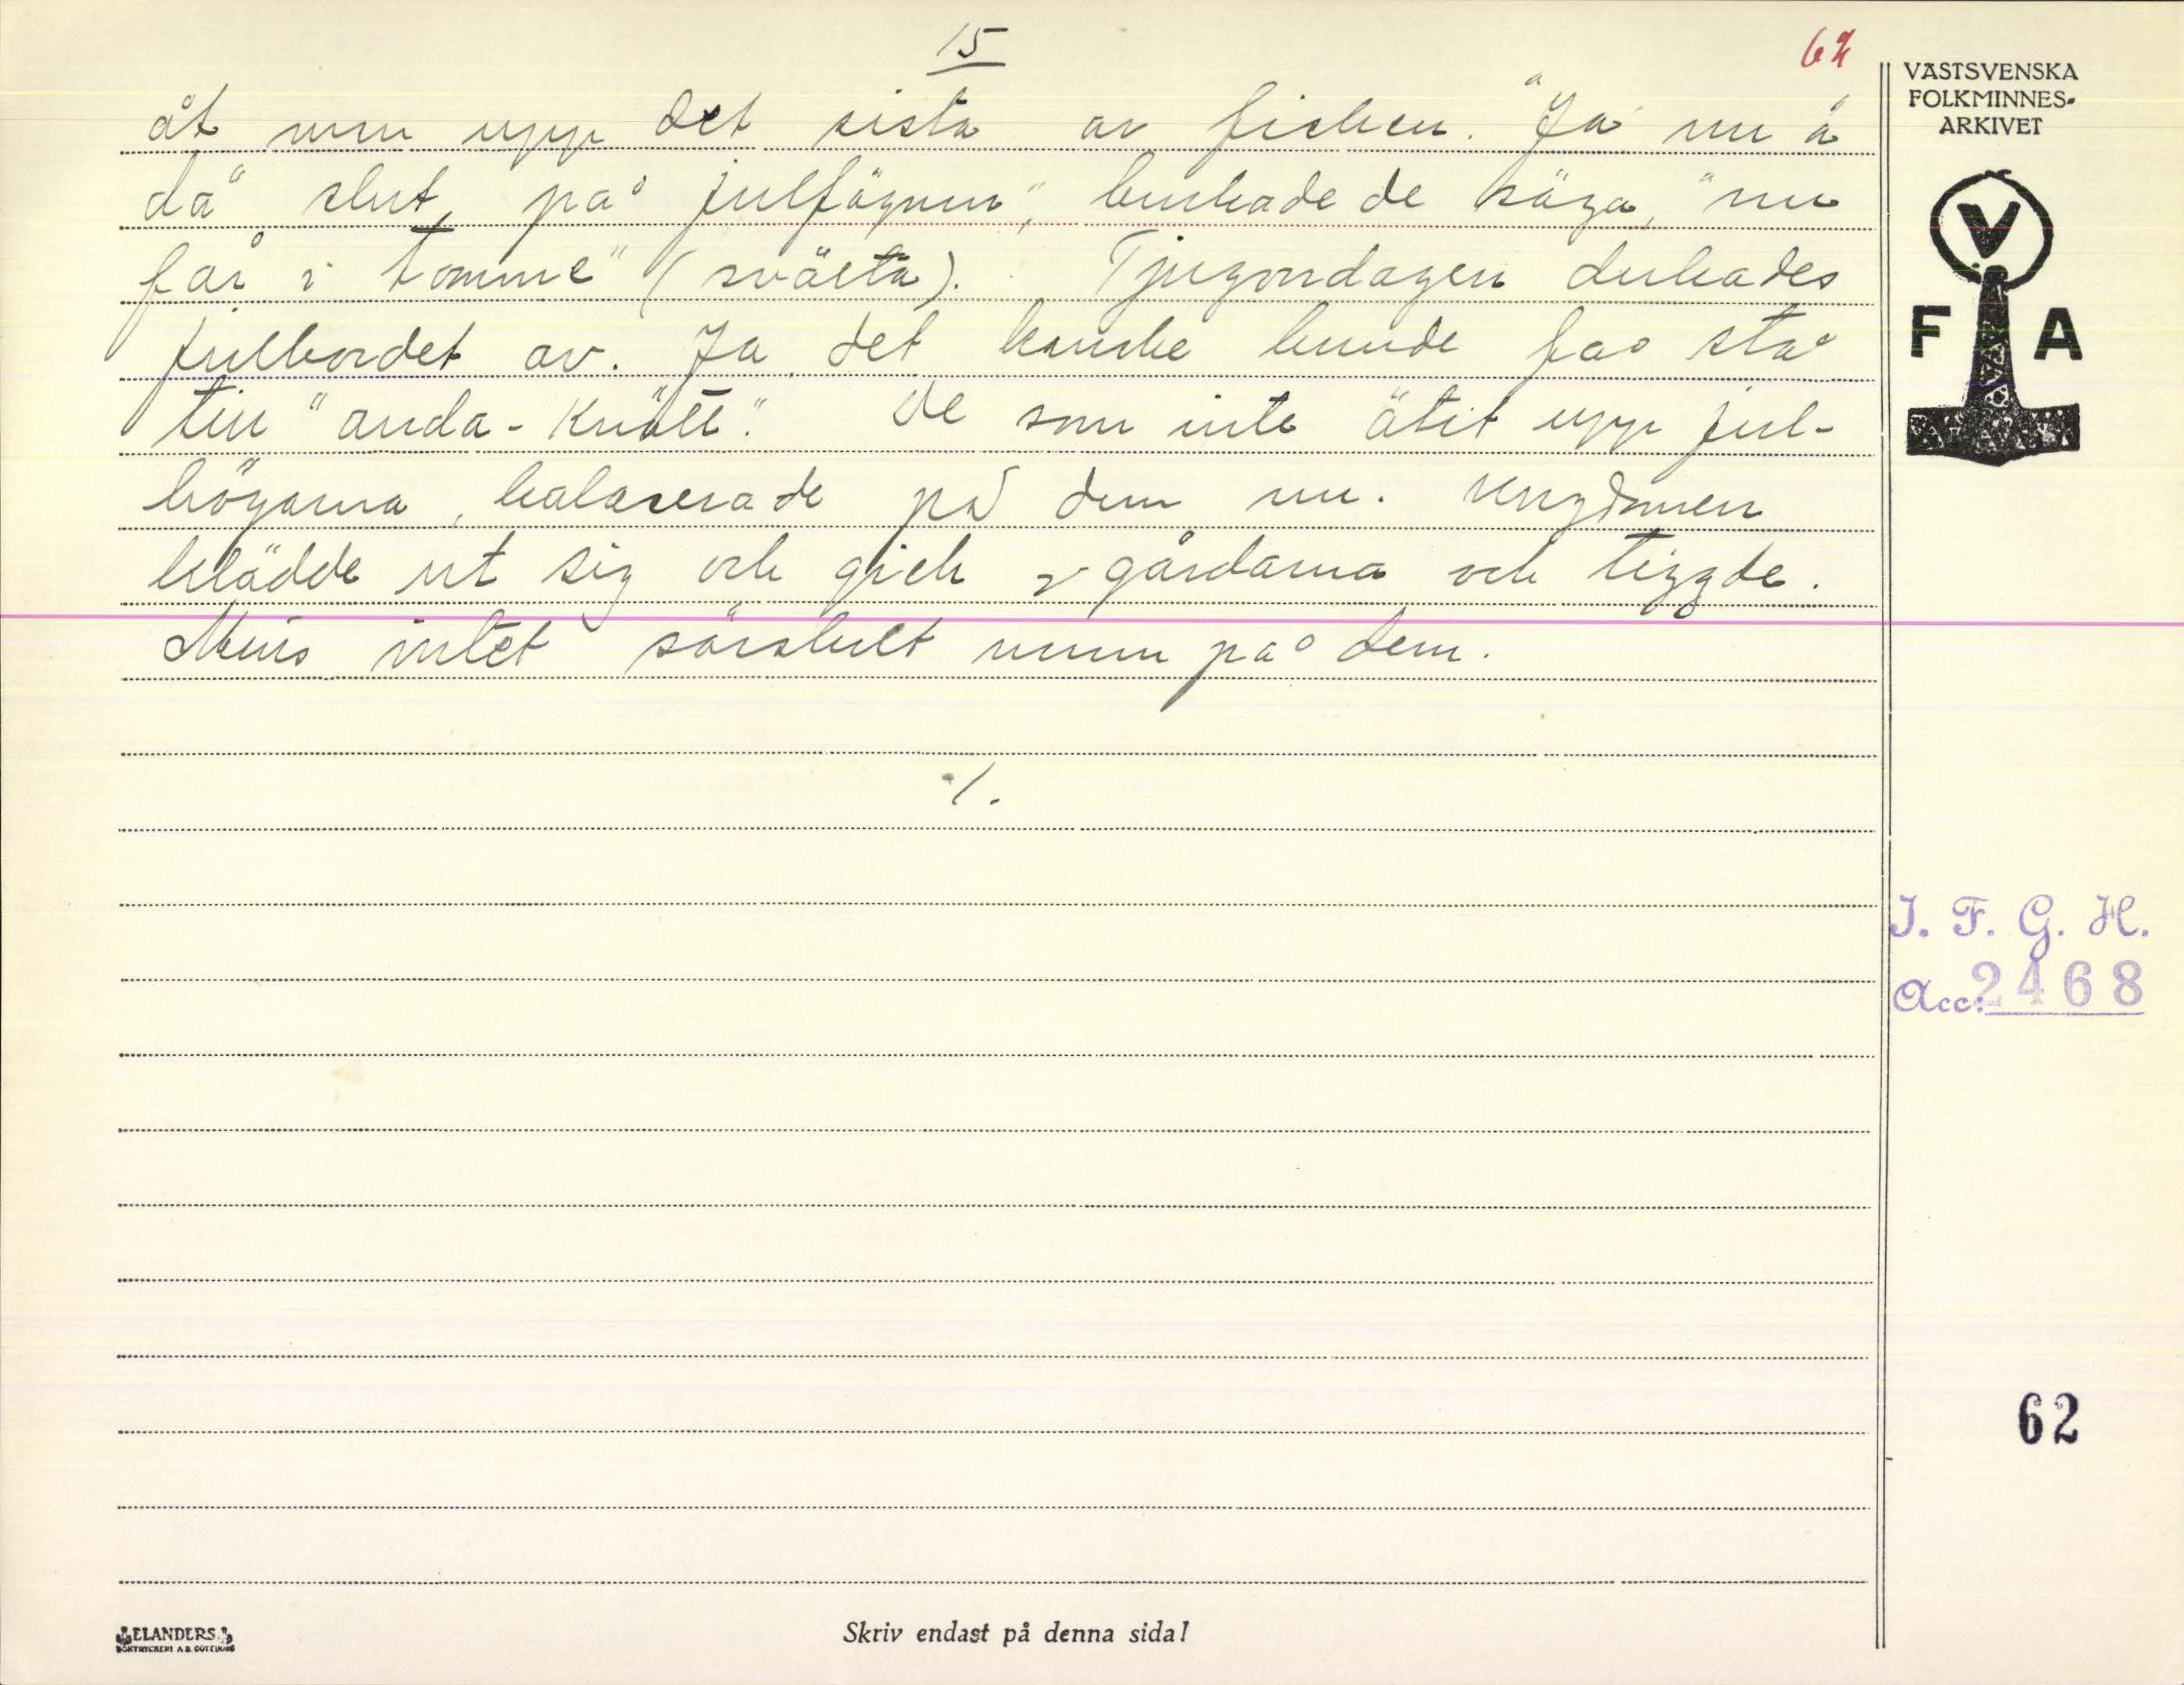 15
62
åt man upp det sista av fisken. "Ja nu ä
dä slut på julfägnan", brukade de säga, "nu
får i tomme" (svälta). Tjugondagen dukades
julbordet av. Ja, det kanske kunde få stå
till "anda-Knått". De som inte ätit upp jul-
högarna, kalaserade på dem nu. Ungdomen
klädde ut sig och gick i gårdarna och tiggde.
Minns intet särskilt namn på dem.
·/.
VÄSTSVENSKA
FOLKMINNES-
ARKIVET
V
F A
I. F. G. H.
Acc. 2468
62
ELANDERS
BOKTRYCKERI A.B. GÖTEBORG
Skriv endast på denna sida!